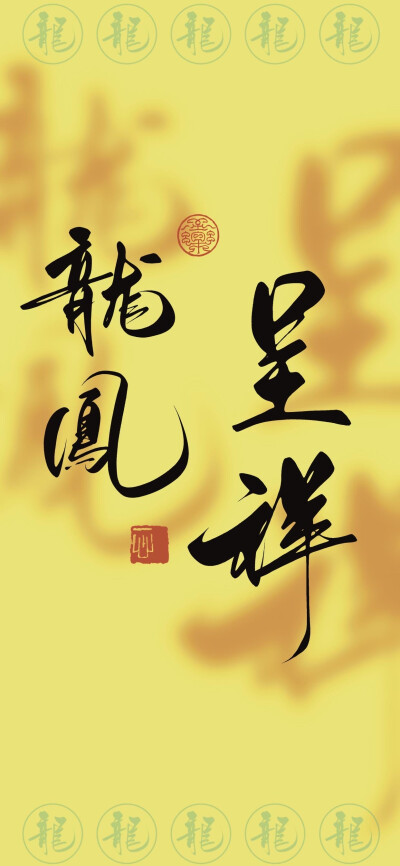 龍 龍 龍 龍 龍
龍鳳
呈祥
龍 龍 龍 龍 龍